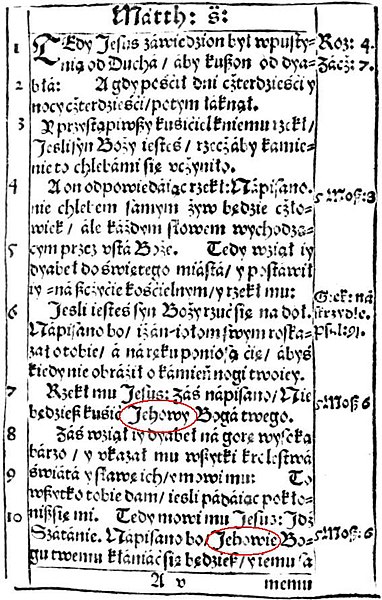 Matth: 8:
1 TEdy Jeſus záwiedzion był w puſty- Roz: 4.
nią od Duchá / áby kuſzon od dya- Zácż: 7.
2 błá: A gdy pośćił dni cżterdzieśći y
nocy cżterdzieśći / potym łáknął.
3 Y przyſtąpiwſzy kuśićiel k niemu rzekł /
Jeſli ſyn Boży ieſteś / rzecż áby kámie-
nie to chlebámi ſię vcżyniło.
4 A on odpowiedáiąc rzekł: Nápiſano. 5 Moß: 8
nie chlebem ſámym żyw będzie cżło-
wiek / ále káżdym ſłowem wychodzą-
5 cym przez vſtá Boże. Tedy wziął iy
dyabeł do świętego miáſtá / y poſtáwił
iy ná ſzcżyćie kośćielnym / y rzekł mu: Grek: ná
6 Jeſli ieſteś ſyn Boży rzuć ſię ná doł. ſkrzydle.
Nápiſano bo / iż án iołom ſwym roſka- pſ.l:91.
zał o tobie / á ná ręku ponioſą ćię / ábyś
kiedy nie obráził o kámień nogi twoiey.
7 Rzekł mu Jeſus: Záś nápiſano / Nie 5 Moß 6
będzieß kuśić Jehowy Bogá twego.
8 Záś wziął iy dyabeł ná gorę wyſoką
bárzo / y vkazał mu wſzytki kroleſtwá
9 świátá y ſławę ich / y mowi mu: To
wſzytko tobie dam / ieſli pádáiąc pokło-
10 niß ſię mi. Tedy mowi mu Jeſus: Idź
Szátánie. Nápiſano bo / Jehowie Bo- 5 Moß: 6
gu twemu kłániáć ſię będzieß / y iemu ſá
A v memu